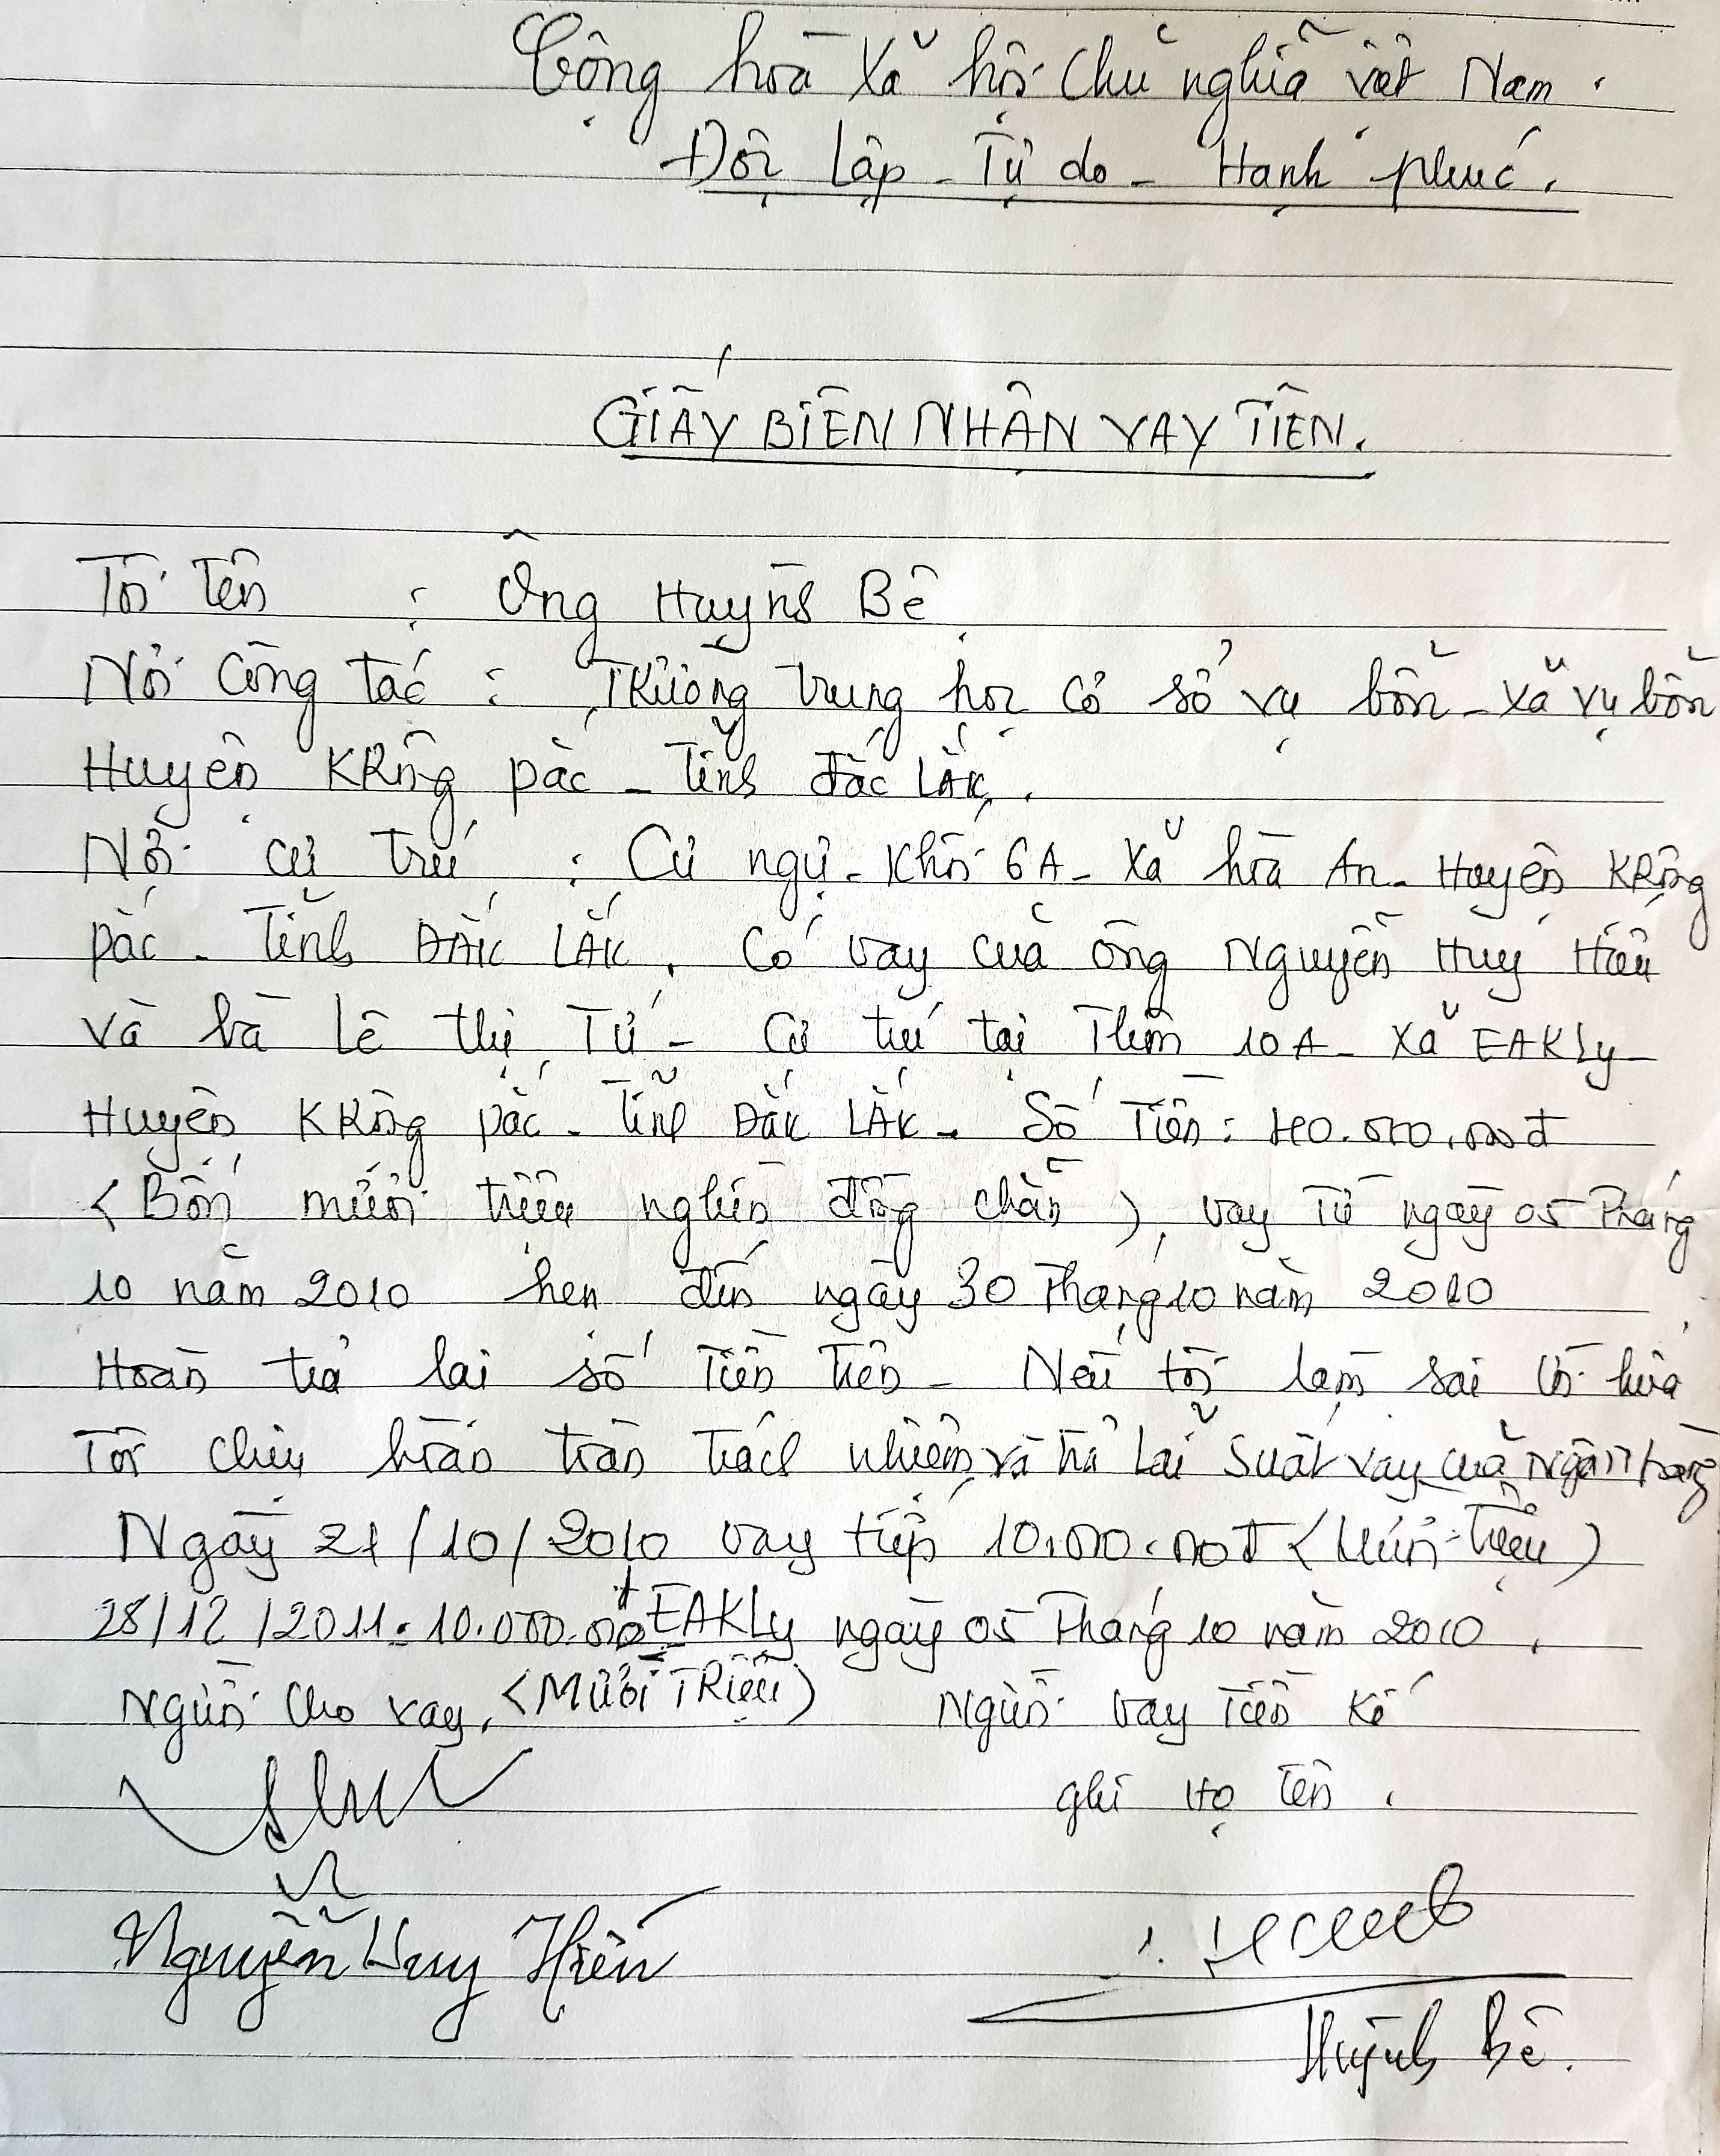 Cộng hoà Xã hội Chủ nghĩa việt Nam.
Độc lập - Tự do - Hạnh phúc.
GIẤY BIÊN NHẬN VAY TIỀN.
Tôi tên : Ông Huỳnh Bê
Nơi Công tác : Trường trung học cơ sở vụ bổn - xã vụ bổn
Huyện KRông pắc - Tỉnh đắc LẮK.
Nơi cư trú : Cư ngụ - Khối 6A - Xã hòa An - Huyện KRông
pắc - Tỉnh ĐẮK LẮK. Có vay của ông Nguyễn Huy
và bà Lê thị Tứ - Cư trú tại Thôn 10A - Xã EAKLy -
Huyện KRông pắc - Tỉnh ĐẮK LẮK - Số Tiền : 40.000.000đ
(Bốn mươi triệu nghìn đồng chẵn), vay Từ ngày 05 Tháng
10 năm 2010 hẹn đến ngày 30 Tháng 10 năm 2010
Hoàn trả lại số Tiền trên - Nếu tôi làm sai lời hứa
Tôi chịu hoàn toàn trách nhiệm và trả Lãi Suất vay của Ngân hàng
Ngày 21/10/2010 vay tiếp 10.000.000đ (Mười Triệu)
28/12/2011: 10.000.000đ EAKLy ngày 05 Tháng 10 năm 2010.
Người Cho vay. (MƯỜI TRIỆU) Người vay Tiền Kí
ghi Họ tên.
Nguyễn Huy Hiến
Huỳnh Bê.